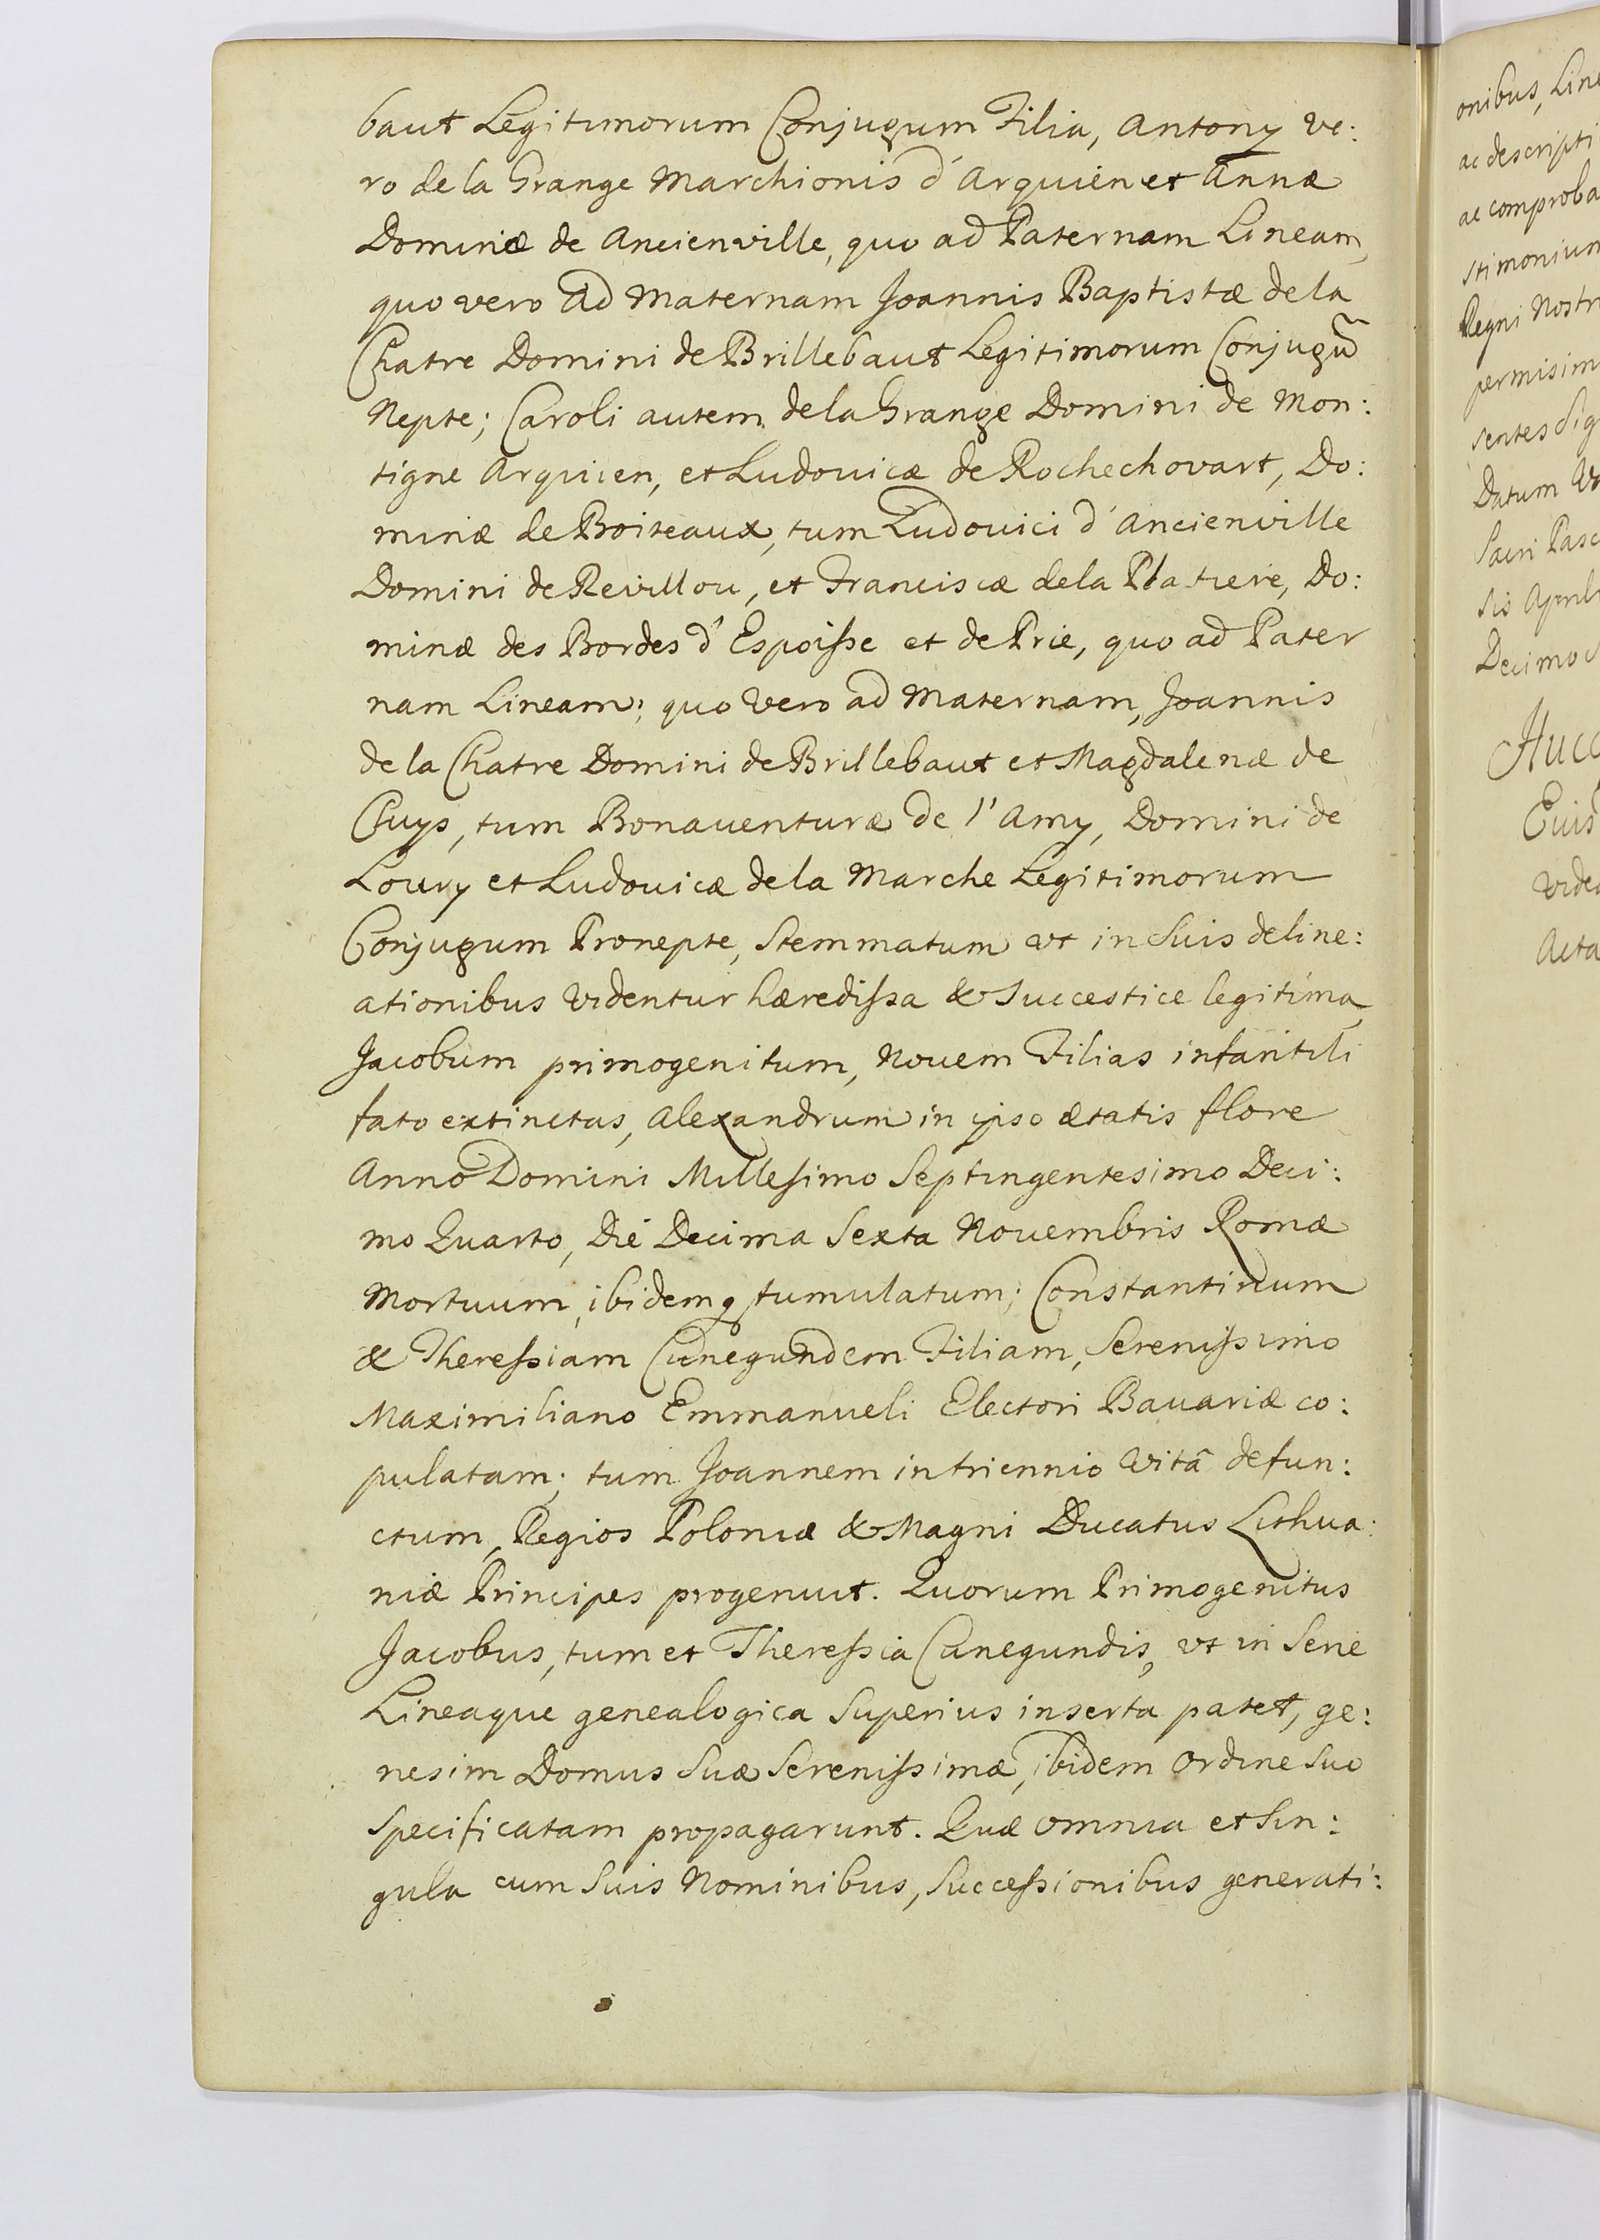 baut Legitimorum Conjugum Filia, Antony ve:
ro de la Grange Marchionis d'Arquien et Annæ
Dominæ de Ancienville, quo ad Paternam Lineam,
quo vero ad Maternam Joannis Baptistæ de la
Chatre Domini de Brillebaut Legitimorum Conjugũ
Nepte; Caroli autem de la Grange Domini de Mon:
tigne Arquien, et Ludovicæ de Rochechovart, Do:
minæ de Boiteaux, tum Ludovici d'Ancienville
Domini de Revillou, et Franciscæ de la Platiere, Do:
minæ des Bordes d'Espoisse et de Prie, quo ad Pater
nam Lineam; quo vero ad Maternam, Joannis
de la Chatre Domini de Brillebaut et Magdalenæ de
Chuys, tum Bonaventuræ de l'Amy, Domini de
Loury et Ludovicæ de la Marche Legitimorum
Conjugum Pronepte, Stemmatum vt in Suis deline:
ationibus videntur hæredissa & Succestice legitima,
Jacobum primogenitum, Novem Filias infantili
fato extinctas, Alexandrum in ipso ætatis flore
Anno Domini Millesimo Septingentesimo Deci:
mo Quarto, Die Decima Sexta Novembris Romæ
Mortuum, ibidemq tumulatum; Constantinum
& Theressiam Cunegundem Filiam, Serenissimo
Maximiliano Emmanueli Electori Bavariæ co:
pulatam; tum Joannem in triennio vitâ defun:
ctum, Regios Poloniæ & Magni Ducatus Lithua:
niæ Principes progenuit. Quorum Primogenitus
Jacobus, tum et Theressia Cunegundis, vt in Serie
Lineaque genealogica Superius inserta patet, ge:
nesim Domus Suæ Serenissimæ, ibidem Ordine Suo
Specificatam propagarunt. Quæ omnia et Sin:
gula cum Suis Nominibus, Successionibus generati:
onibus, Line
ac descripti
ac comproba
stimonium
Regni Nostr
permisim
sentes Sig
Datum
Sacri Pasc
sis April
Decimo
Acta